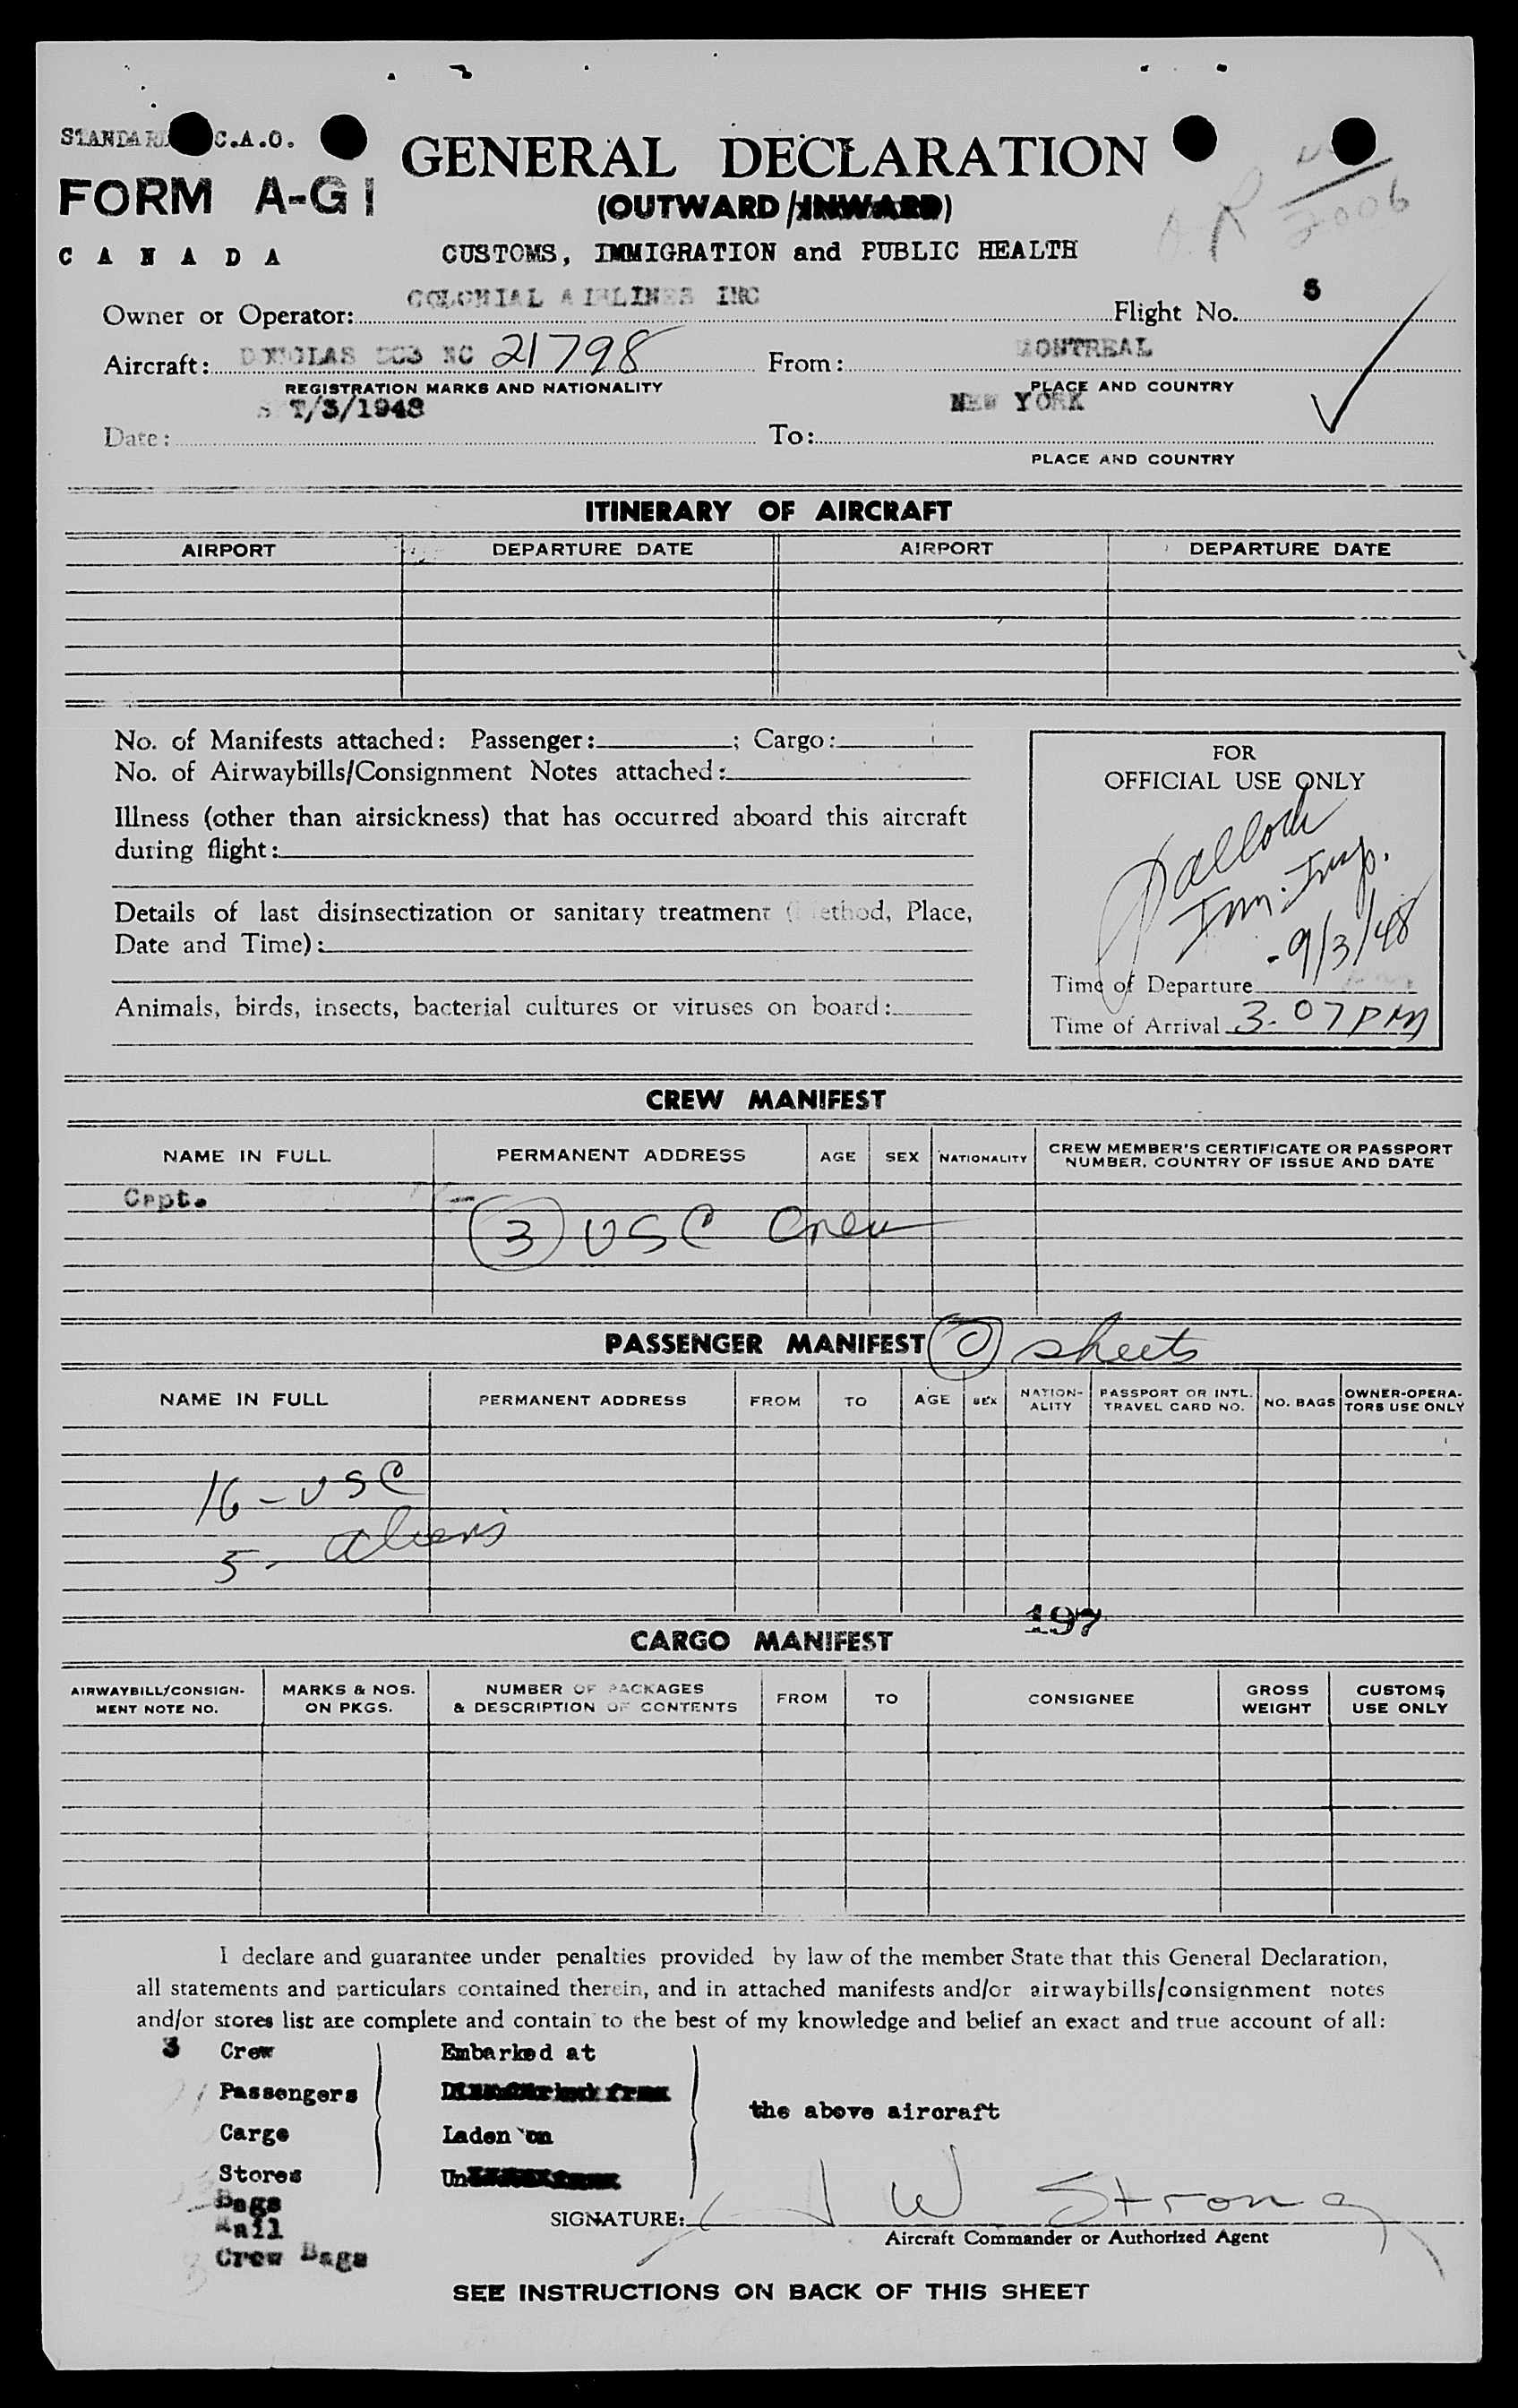 C.A.O.
GENERAL DECLARATION
FORM A-G1
(OUTWARD/INWARD)
2006
CANADA
CUSTOMS, IMMIGRATION and PUBLIC HEALTH
Owner or Operator: COLONIAL AIRLINES INC Flight No.
Aircraft: DOUGLAS DC3 NC 21798 From: MONTREAL
REGISTRATION MARKS AND NATIONALITY PLACE AND COUNTRY
Date: /3/1948 To: NEW YORK
PLACE AND COUNTRY
ITINERARY OF AIRCRAFT
AIRPORT DEPARTURE DATE AIRPORT DEPARTURE DATE
No. of Manifests attached: Passenger: ; Cargo:
No. of Airwaybills/Consignment Notes attached:
Illness (other than airsickness) that has occurred aboard this aircraft
during flight:
Details of last disinsectization or sanitary treatment (Method, Place,
Date and Time):
Animals, birds, insects, bacterial cultures or viruses on board:
FOR
OFFICIAL USE ONLY
Imm. Insp.
9/3/48
Time of Departure
Time of Arrival 3.07 PM
CREW MANIFEST
NAME IN FULL PERMANENT ADDRESS AGE SEX NATIONALITY CREW MEMBER'S CERTIFICATE OR PASSPORT
NUMBER, COUNTRY OF ISSUE AND DATE
Capt.
3 USC Crew
PASSENGER MANIFEST 0 sheets
NAME IN FULL PERMANENT ADDRESS FROM TO AGE SEX NATION- PASSPORT OR INTL. NO. BAGS OWNER-OPERA-
ALITY TRAVEL CARD NO. TORS USE ONLY
16 - USC
5 - aliens
197
CARGO MANIFEST
AIRWAYBILL/CONSIGN- MARKS & NOS. NUMBER OF PACKAGES FROM TO CONSIGNEE GROSS CUSTOMS
MENT NOTE NO. ON PKGS. & DESCRIPTION OF CONTENTS WEIGHT USE ONLY
I declare and guarantee under penalties provided by law of the member State that this General Declaration,
all statements and particulars contained therein, and in attached manifests and/or airwaybills/consignment notes
and/or stores list are complete and contain to the best of my knowledge and belief an exact and true account of all:
3 Crew Embarked at
Passengers
the above aircraft
Cargo Laden on
Stores
Bags
Mail
SIGNATURE: J W Strong
Aircraft Commander or Authorized Agent
Crew Bags
SEE INSTRUCTIONS ON BACK OF THIS SHEET